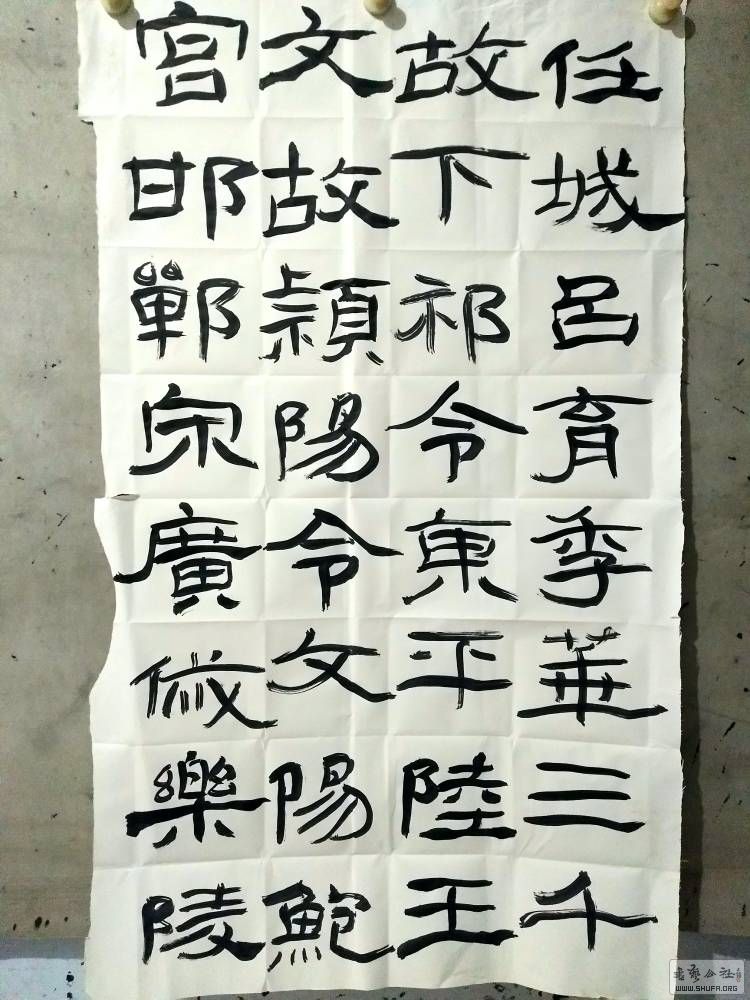 任城呂育季華三千
故下祁令東平陸王
文故潁陽令文陽鮑
宮邯鄲宋廣樂陵
WWW.SHUFA.ORG